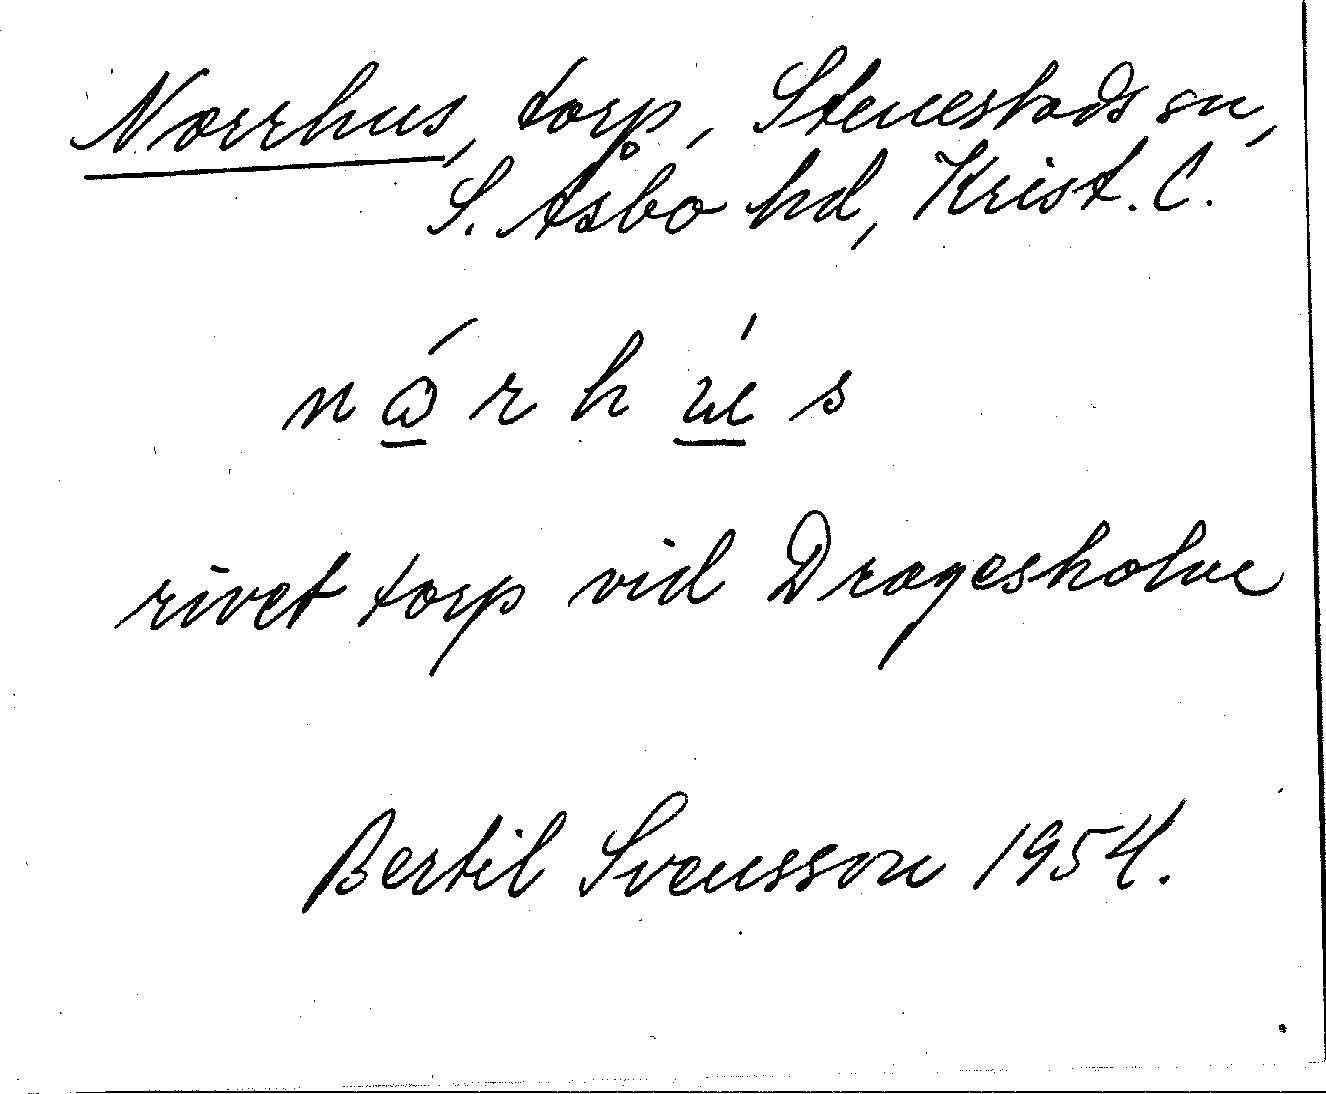 Norrhus, torp, Stenestads sn,
S. Åsbo hd, Krist. l.
n ó r h ú s
rivet torp vid Dragesholm
Bertil Svensson 1954.